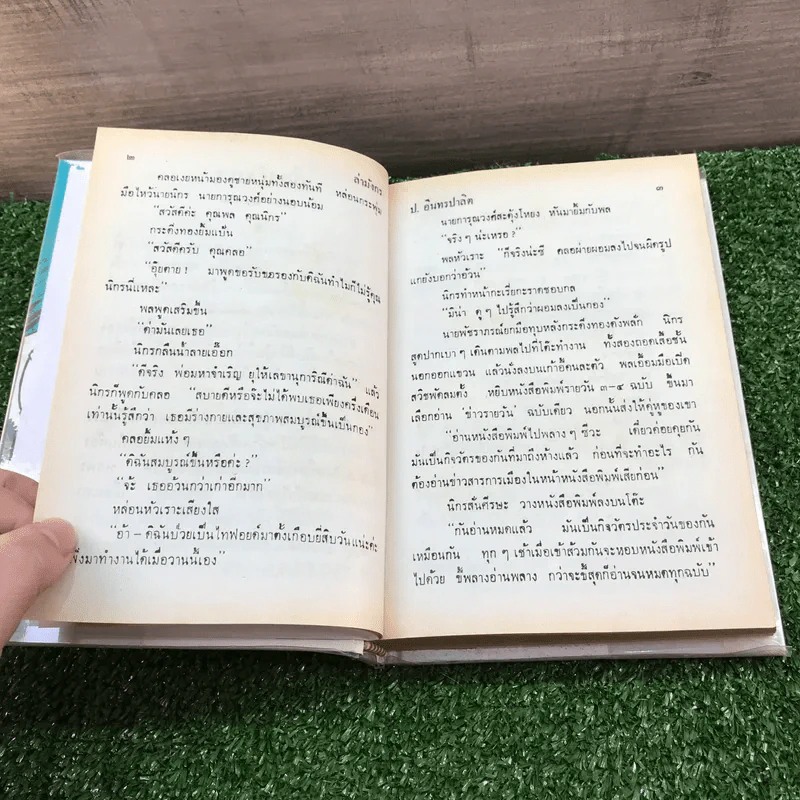 ๒
ล่ามังกร
คลอเงยหน้ามองดูชายหนุ่มทั้งสองทันที หล่อนกระพุ่ม
มือไหว้นายนิกร นายการุณวงศ์อย่างนอบน้อม
"สวัสดีค่ะ คุณพล คุณนิกร"
กระดิ่งทองยิ้มแป้น
"สวัสดีครับ คุณคลอ"
"อุ๊ยตาย ! มาพูดขอรับขอรองกับดิฉันทำไมก็ไม่รู้คุณ
นิกรนี่แหละ"
พลพูดเสริมขึ้น
"ด่ามันเลยเธอ"
นิกรกลืนน้ำลายเอื๊อก
"ดีจริง พ่อมหาจำเริญ ยุให้เลขานุการิณีด่าฉัน" แล้ว
นิกรก็พูดกับคลอ "สบายดีหรือจะไม่ได้พบเธอเพียงครึ่งเดือน
เท่านั้นรู้สึกว่า เธอมีร่างกายและสุขภาพสมบูรณ์ขึ้นเป็นกอง"
คลอยิ้มแห้ง ๆ
"ดิฉันสมบูรณ์ขึ้นหรือค่ะ ?
"จ้ะ เธออ้วนกว่าเก่าอีกมาก"
หล่อนหัวเราะเสียงใส
"อ้า – ดิฉันป่วยเป็นไทฟอยด์มาตั้งเกือบยี่สิบวันแน่ะค่ะ
พึ่งมาทำงานได้เมื่อวานนี้เอง"
ป. อินทรปาลิต
๓
นายการุณวงศ์สะดุ้งโหยง หันมายิ้มกับพล
"จริง ๆ น่ะเหรอ ?"
พลหัวเราะ "ก็จริงน่ะซี คลอผ่ายผอมลงไปจนผิดรูป
แกยังบอกว่าอ้วน"
นิกรทำหน้ากะเรี่ยกะราดชอบกล
"มีน่า ดู ๆ ไปรู้สึกว่าผอมลงเป็นกอง"
นายพัชราภรณ์ยกมือทุบหลังกระดิ่งทองดังพลั่ก นิกร
สูดปากเบา ๆ เดินตามพลไปที่โต๊ะทำงาน ทั้งสองถอดเสื้อชั้น
นอกออกแขวน แล้วนั่งลงบนเก้าอี้คนละตัว พลเอื้อมมือเปิด
สวิชพัดลมตั้ง หยิบหนังสือพิมพ์รายวัน ๓-๔ ฉบับ ขึ้นมา
เลือกอ่าน 'ข่าวรายวัน' ฉบับเดียว นอกนั้นส่งให้คู่หูของเขา
"อ่านหนังสือพิมพ์ไปพลาง ๆ ซีวะ เดี๋ยวค่อยคุยกัน
มันเป็นกิจวัตรของกันที่มาถึงห้างแล้ว ก่อนที่จะทำอะไร กัน
ต้องอ่านข่าวสารการเมืองในหน้าหนังสือพิมพ์เสียก่อน"
นิกรสั่นศีรษะ วางหนังสือพิมพ์ลงบนโต๊ะ
"กันอ่านหมดแล้ว มันเป็นกิจวัตรประจำวันของกัน
เหมือนกัน ทุก ๆ เช้าเมื่อเข้าส้วมกันจะหอบหนังสือพิมพ์เข้า
ไปด้วย ขี้พลางอ่านพลาง กว่าจะขี้สุดก็อ่านจนหมดทุกฉบับ"